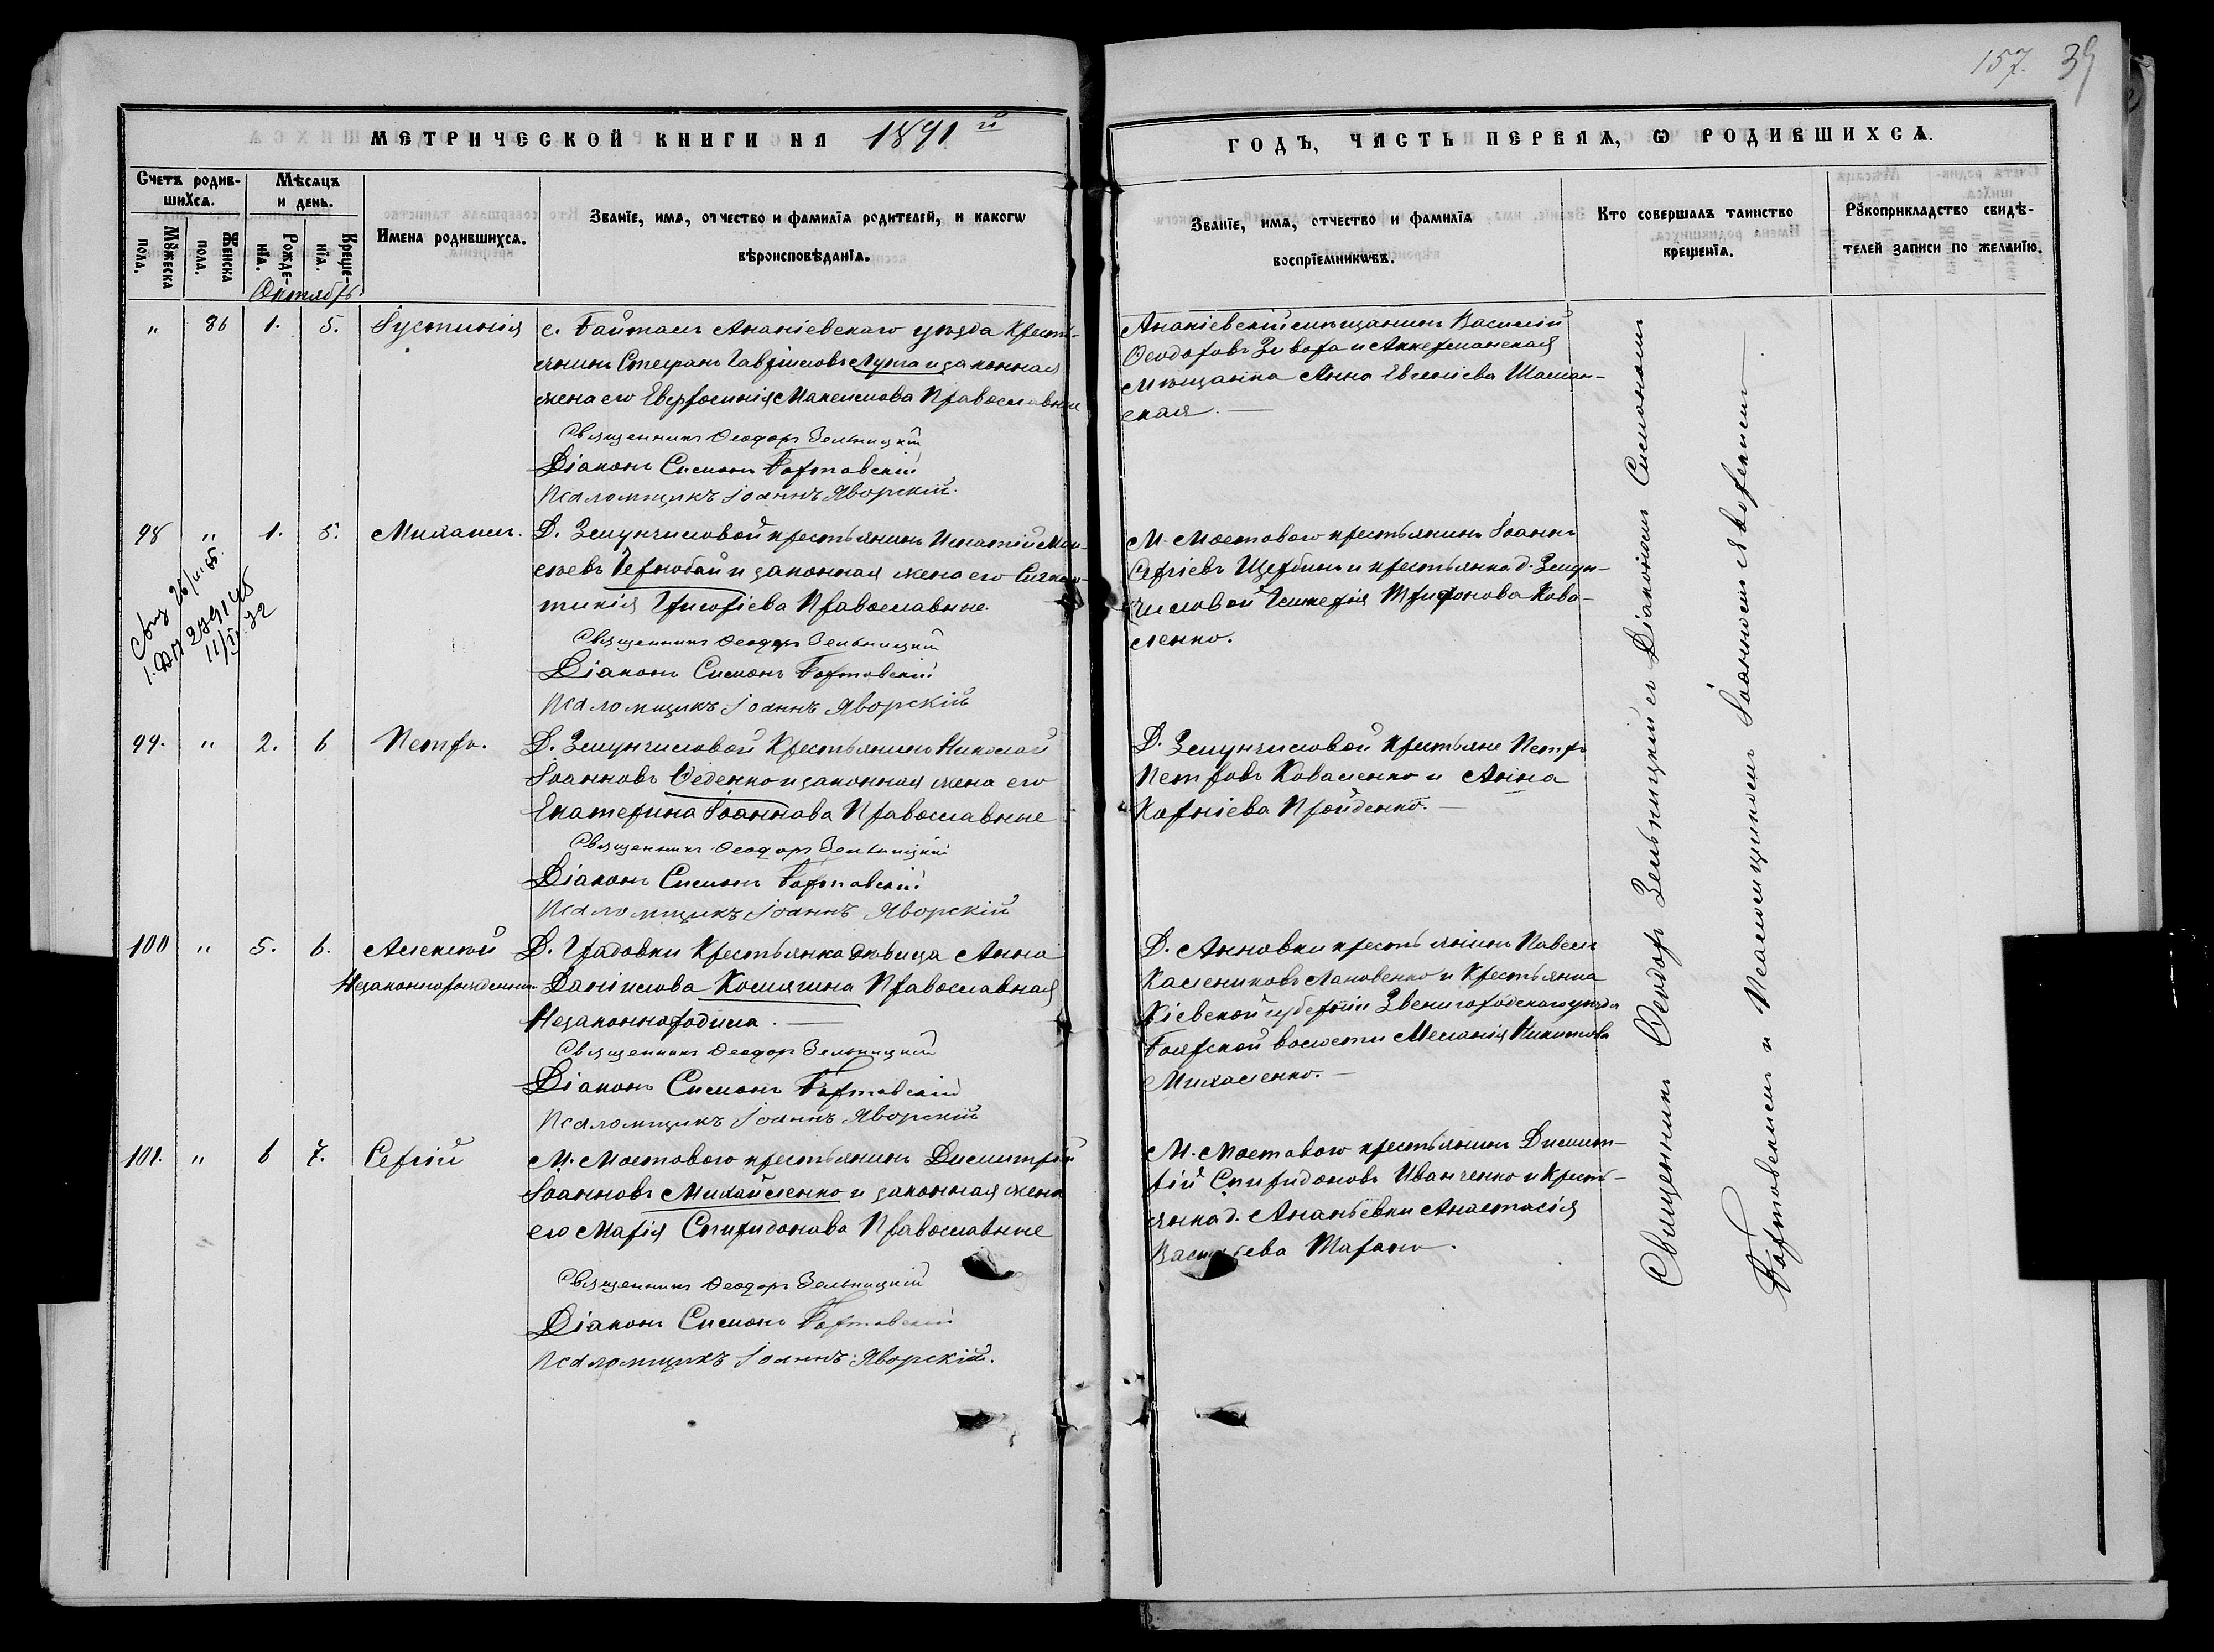 157. 39
МЕТРИЧЕСКОЙ КНИГИ НА 1891й
ГОДЪ, ЧАСТЬ ПЕРВАЯ, Ѡ РОДИВШИХСѦ.
Счетъ родив-
шихсѧ.
Мѣсѧцъ
и день.
Мꙋжеска
пола.
Женска
пола.
Рожде-
нїѧ.
Креще-
нїѧ.
Имена родившихсѧ.
Званїе, имѧ, отчество и фамилїѧ родителей, и какогѡ
вѣроисповѣданїѧ.
Званїе, имѧ, отчество и фамилїѧ
воспрїемникѡвъ.
Кто совершалъ таинство
крещенїѧ.
Рꙋкоприкладство свидѣ-
телей записи по желанїю.
Октябрь
" 86 1. 5. Іустинія
с. Байталъ Ананіевскаго уѣзда Кресть-
янинъ Стефанъ Гавріиловъ Лупа и законная
жена его Евфросинія Максимова Православные
Священникъ Ѳеодоръ Зельницкій
Діаконъ Симонъ Бортовскій
Псаломщикъ Іоаннъ Яворскій.
Ананіевскій мѣщанинъ Василій
Ѳеодоровъ Зивора и Аккерманская
мѣщанка Анна Евгеніева Шаман-
ская.
98 " 1. 5. Михаилъ.
Д.Земунчиловой крестьянинъ Игнатій Мои-
сеевъ Чернобай и законная жена его Синкли-
тикія Григоріева Православные.
Священникъ Ѳеодоръ Зельницкій
Діаконъ Симонъ Бортовскій
Псаломщикъ Іоаннъ Яворскій
М. Мостового крестьянинъ Іоаннъ
Сергіевъ Щербина и крестьянка д. Земун-
чиловой Гликерія Трифонова Кова-
ленко.
11/V 32
99. " 2. 6 Петръ.
Д. Земунчиловой Крестьянинъ Николай
Іоанновъ Феденко и законная жена его
Екатерина Іоаннова Православные
Священникъ Ѳеодоръ Зельницкій
Діаконъ Симонъ Бортовскій
Псаломщикъ Іоаннъ Яворскій
Д. Земунчиловой Крестьяне Петръ
Петровъ Коваленко и Анна
Корніева Пройденко.
100 " 5. 6. Алексѣй
Незаконнорожденный
Д. Градовки Крестьянка дѣвица Анна
Даніилова Кошягина Православная
Незаконно родила.
Священникъ Ѳеодоръ Зельницкій
Діаконъ Симонъ Бортовскій
Псаломщикъ Іоаннъ Яворскій
Д. Анновки крестьянинъ Павелъ
Калениковъ Лановенко и Крестьянка
Кіевской губерніи Звенигородскаго уѣзда
Боярской волости Меланія Никитова
Михаленко.
101. " 6 7. Сергій
М. Мостового крестьянинъ Димитрій
Іоанновъ Михайленко и законная жена
его Марія Спиридонова Православные
Священникъ Ѳеодоръ Зельницкій
Діаконъ Симонъ Бортовскій
Псаломщикъ Іоаннъ Яворскій.
М. Мостового крестьянинъ Димит-
рій Спиридоновъ Иванченко и Кресть-
янка д. Ананьевки Анастасія
Васильева Таранъ.
Священникъ Ѳеодоръ Зельницкій съ Діакономъ Симономъ
Бортовскимъ и Псаломщикомъ Іоанномъ Яворскимъ